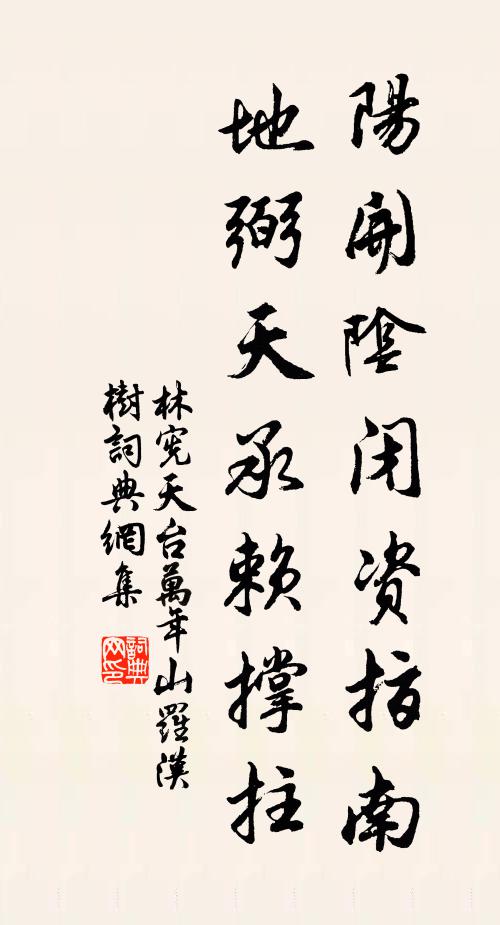 陽開陰閉資指南
地弼天承賴撐拄
林宪天台萬年山羅漢
樹詞典網集
詞典網印